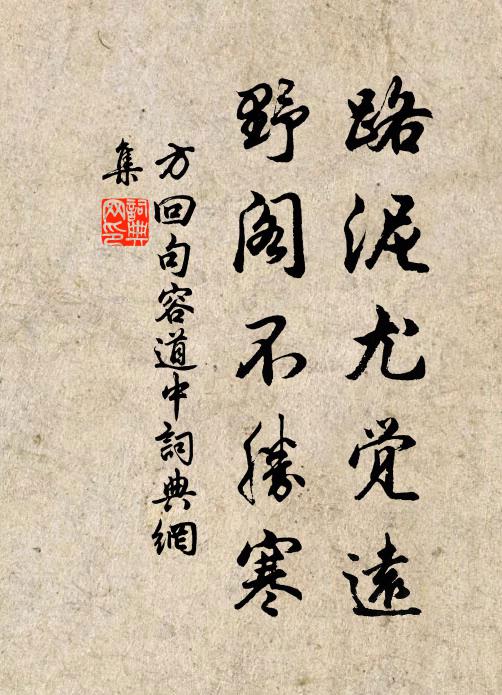 路泥尤覺遠
野阁不勝寒
方回句容道中詞典網
集
詞典
网印